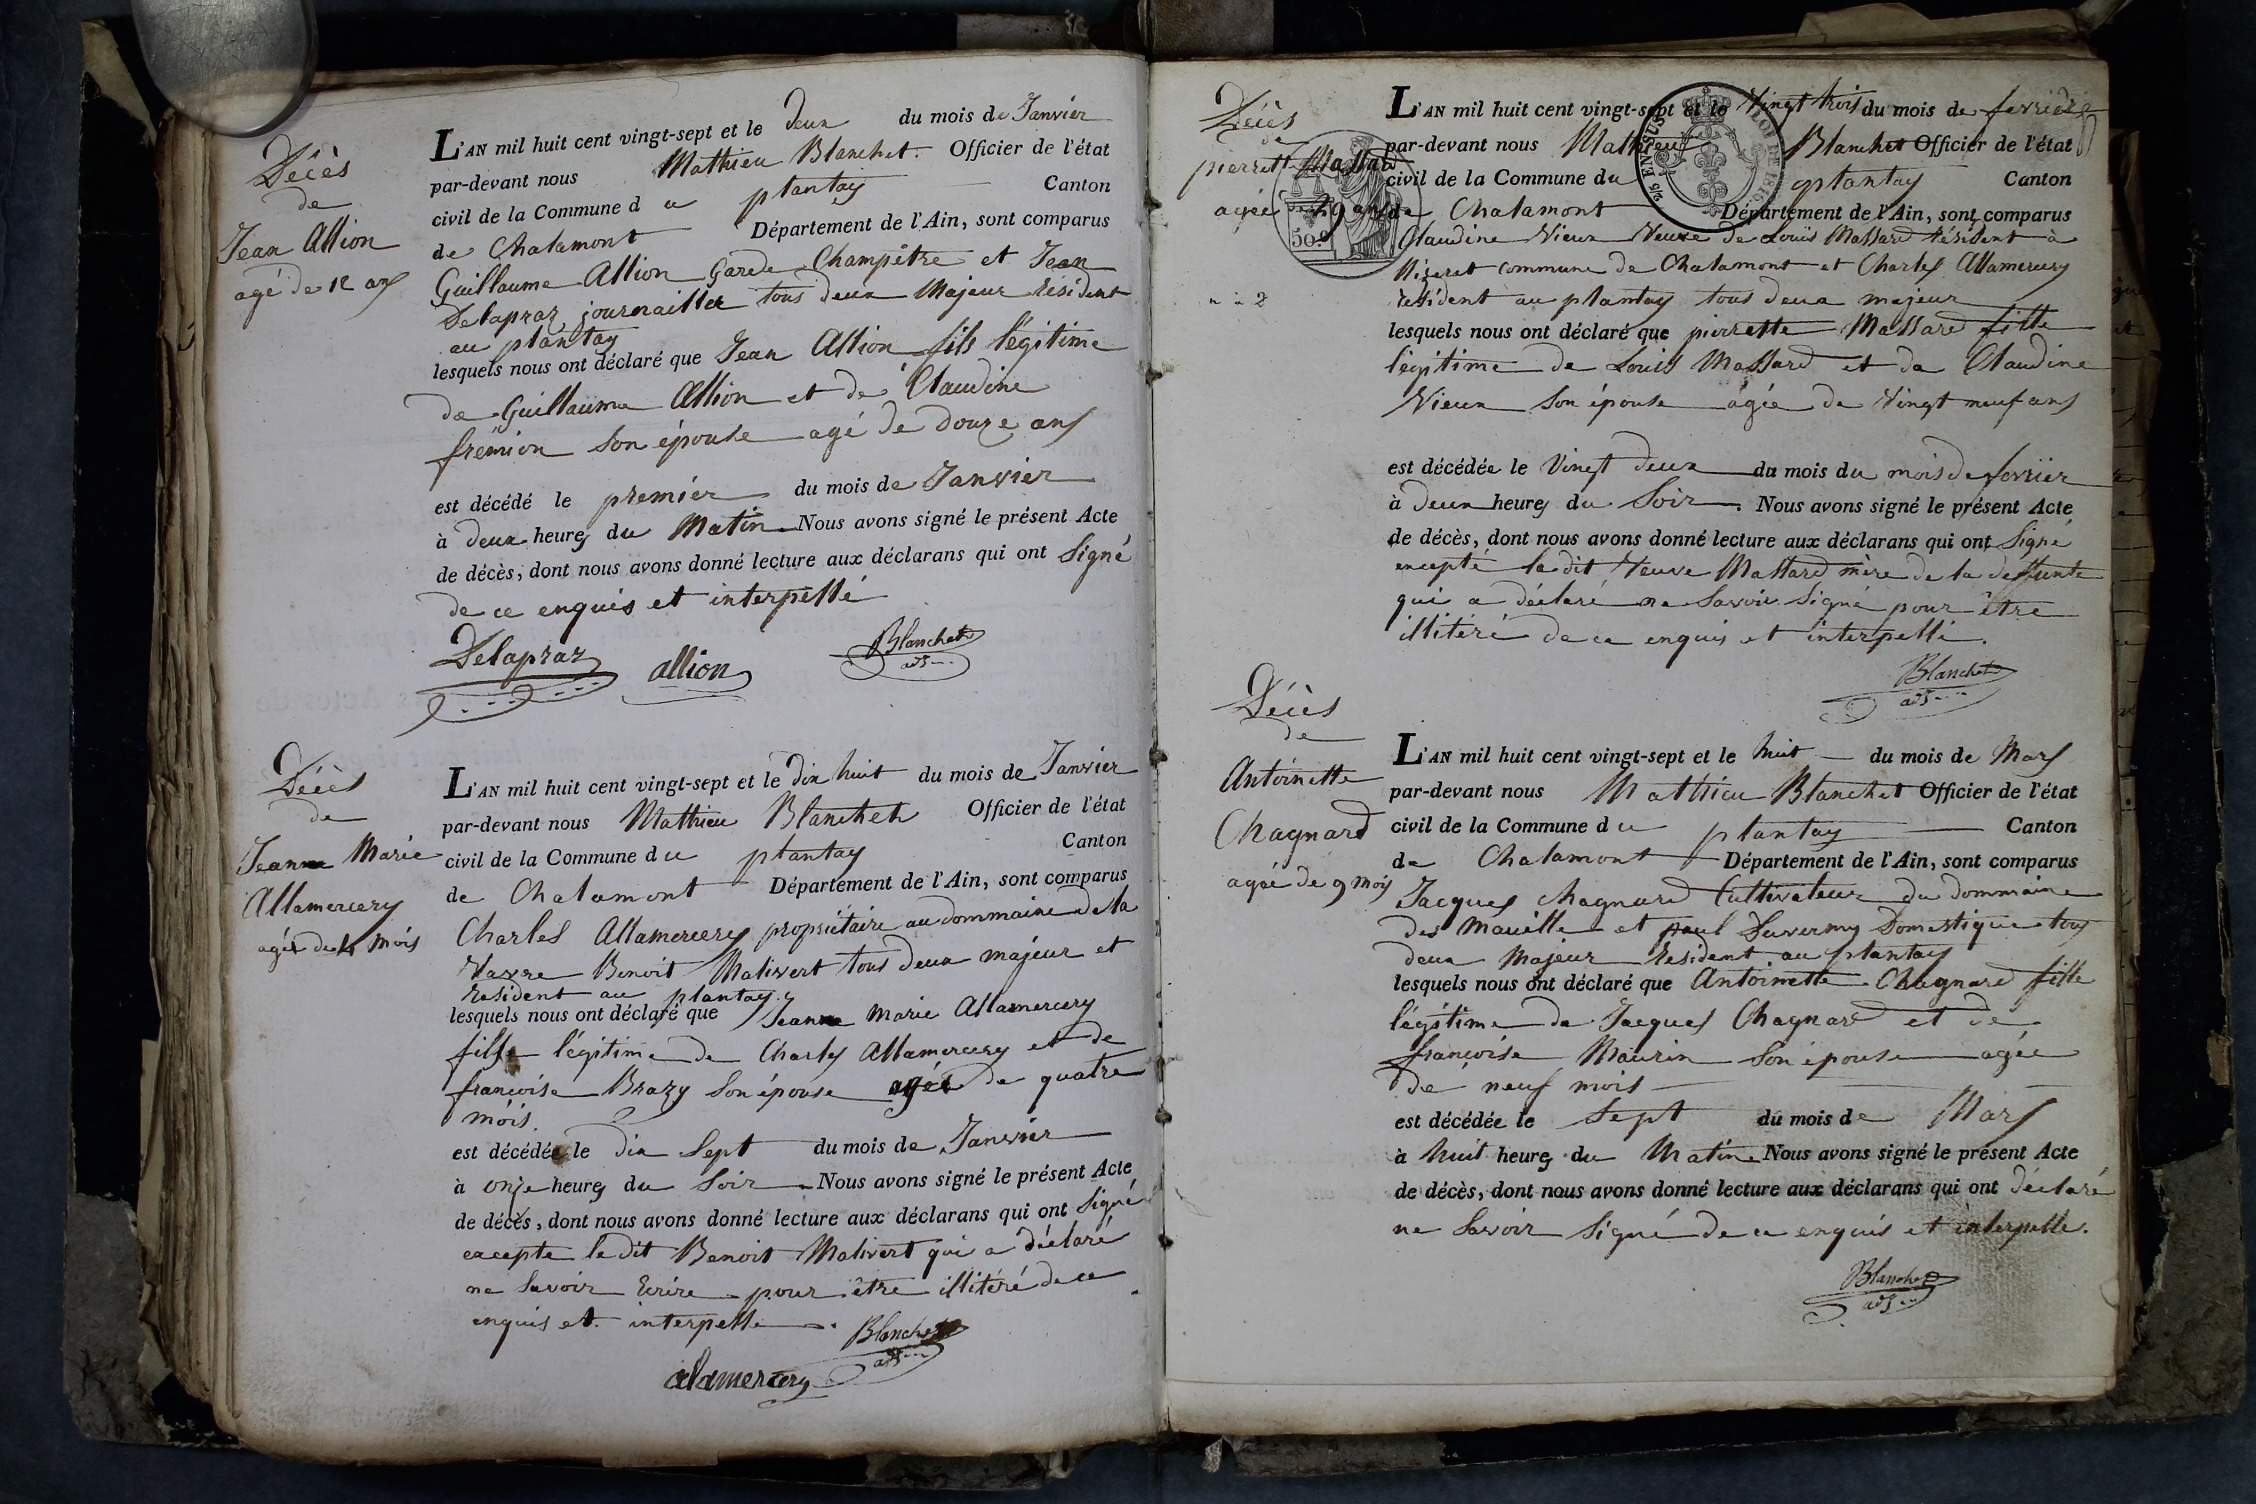 Décès
de
Jean Allion
agé de 12 ans
L'AN mil huit cent vingt-sept et le deux du mois de Janvier
par-devant nous Mathieu Blanchet. Officier de l'état
civil de la Commune du plantay Canton
de Chalamont Département de l'Ain, sont comparus
Guillaume Allion Garde Champêtre et Jean
Delapraz journaillier tous deux Majeur Résident
au plantay
lesquels nous ont déclaré que Jean Allion fils légitime
de Guillaume Allion et de Claudine
frémion son épouse agé de douze ans
est décédé le premier du mois de Janvier
à deux heures du Matin Nous avons signé le présent Acte
de décès, dont nous avons donné lecture aux déclarans qui ont Signé
de ce enquis et interpellé
Delapraz allion Blanchet
adj
Décès
de
Jeanne Marie
Allamercery
agée de 4 mois
L'AN mil huit cent vingt-sept et le dix huit du mois de Janvier
par-devant nous Mathieu Blanchet Officier de l'état
civil de la Commune du plantay Canton
de Chalamont Département de l'Ain, sont comparus
Charles Allamercery propriétaire au dommaine de la
Vavre Benoit Malivert tous deux majeur et
résident au plantay.
lesquels nous ont déclaré que Jeanne Marie Allamercery
fille légitime de Charles Allamercery et de
françoise Brazy son épouse agée de quatre
mois.
est décédée le dix Sept du mois de Janvier
à onze heures du Soir Nous avons signé le présent Acte
de décès, dont nous avons donné lecture aux déclarans qui ont Signé
excepté le dit Benoit Malivert qui a déclaré
ne Savoir Ecrire pour être illitéré de ce
enquis et interpellé.
Blanchet
adj
alamercery
Décès
de
pierrette Massard
agée de 29 ans
50.c
n a 2
L'AN mil huit cent vingt-sept et le Vingt trois du mois de fevrier
par-devant nous Mathieu Blanchet Officier de l'état
civil de la Commune du plantay Canton
de Chalamont Département de l'Ain, sont comparus
EN SUS
LOI DE 1816
Claudine Vieux Veuve de Louis Massard résident à
commune de Chalamont et Charles Allamercery
résident au plantay tous deux majeur
lesquels nous ont déclaré que pierrette Massard fille
légitime de Louis Massard et de Claudine
Vieux Son épouse agée de Vingt neuf ans
est décédée le Vingt deux du mois du mois de fevrier
à deux heures du Soir. Nous avons signé le présent Acte
de décès, dont nous avons donné lecture aux déclarans qui ont Signé
excepté la dit Veuve Massard mère de la deffunte
qui a déclaré ne Savoir Signé pour être
illitéré de ce enquis et interpellé.
Blanchet
adj
Décès
de
Antoinette
Chagnard
agée de 9 mois
L'AN mil huit cent vingt-sept et le huit du mois de Mars
par-devant nous Mathieu Blanchet Officier de l'état
civil de la Commune du plantay Canton
de Chalamont Département de l'Ain, sont comparus
Jacques Chagnard Cultivateur du dommaine
des Mauille et paul Duvernay Domestique tous
deux Majeur Résident au plantay
lesquels nous ont déclaré que Antoinette Chagnard fille
légitime de Jacques Chagnard et de
françoise Maurin Son épouse agée
de neuf mois
est décédée le Sept du mois de Mars
à huit heures du Matin Nous avons signé le présent Acte
de décès, dont nous avons donné lecture aux déclarans qui ont déclaré
ne Savoir Signé de ce enquis et interpellé.
Blanchet
adj